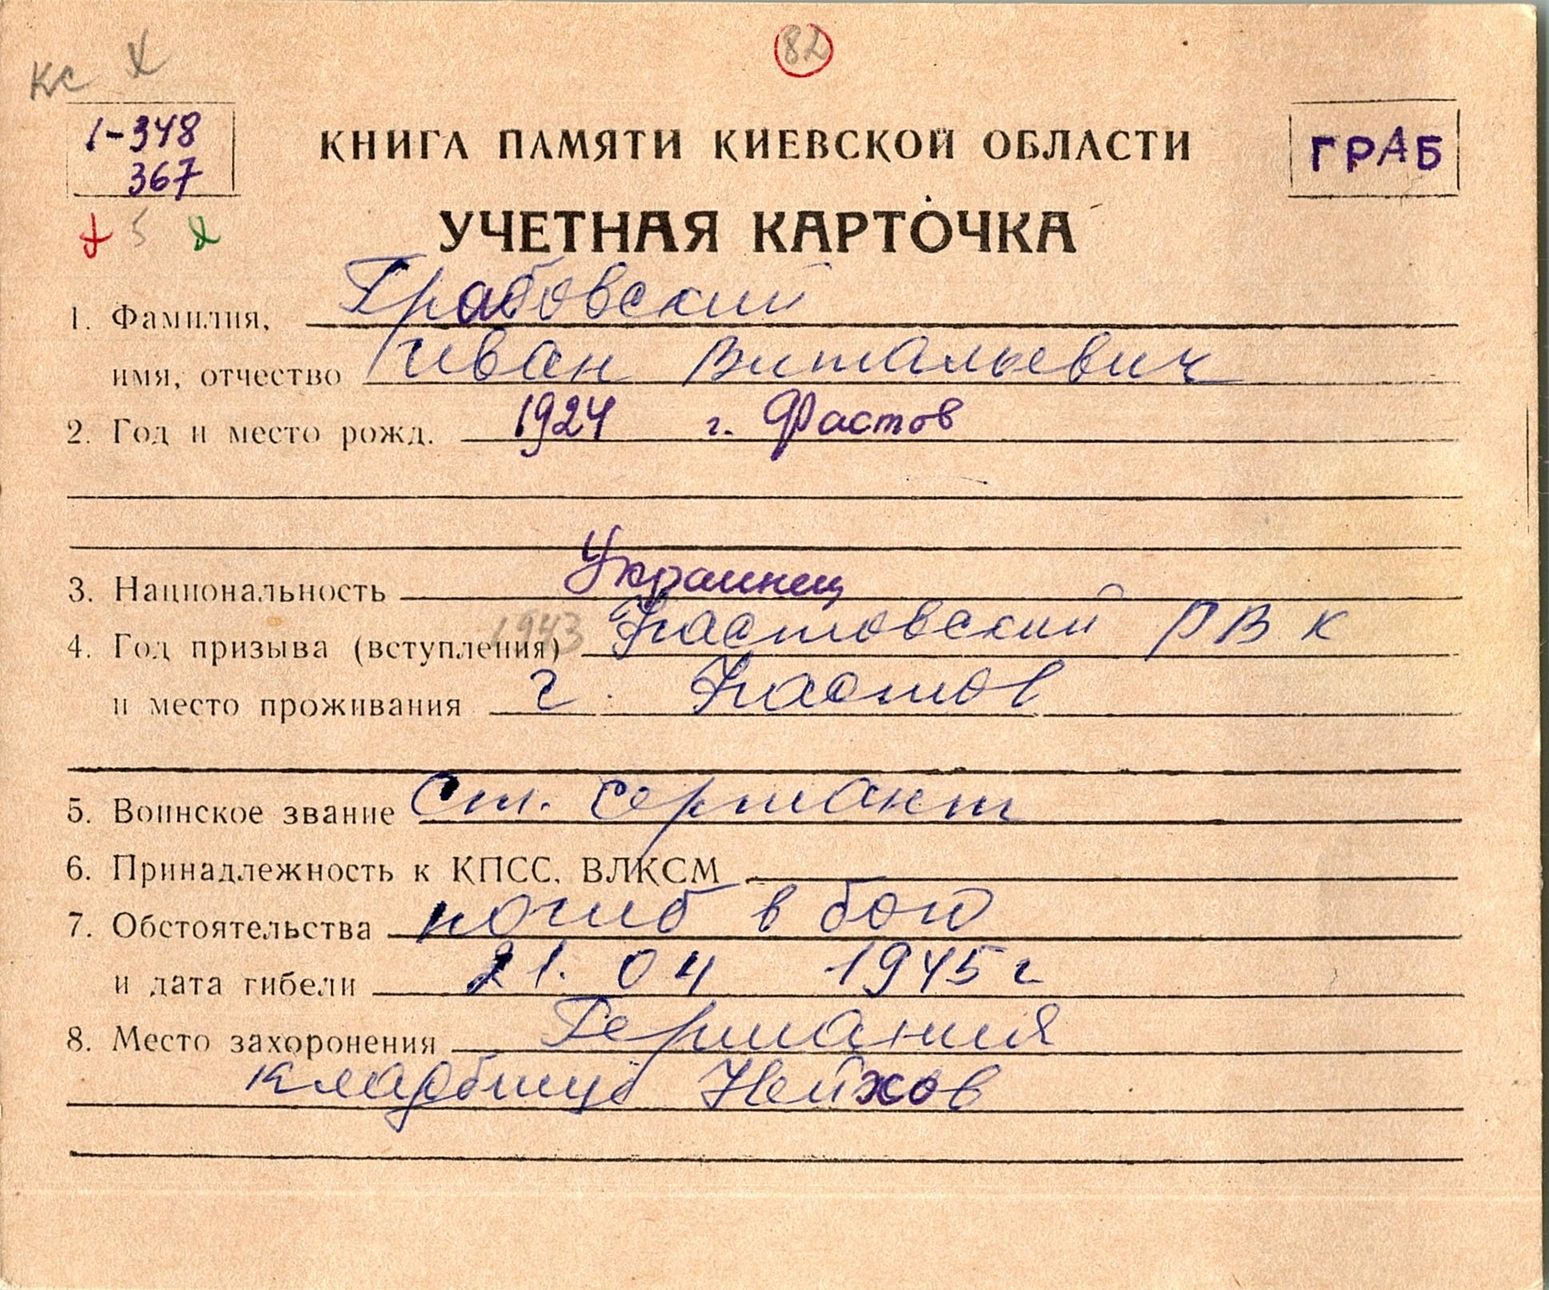 кс х
82
1-348
367
КНИГА ПАМЯТИ КИЕВСКОЙ ОБЛАСТИ
ГРАБ
5
УЧЕТНАЯ КАРТОЧКА
1. Фамилия, Грабовский
имя, отчество Иван Витальевич
2. Год и место рожд. 1924 г. Фастов
3. Национальность Украинец
4. Год призыва (вступления) 1943 Фастовский РВК
и место проживания г. Фастов
5. Воинское звание Ст. сержант
6. Принадлежность к КПСС, ВЛКСМ
7. Обстоятельства погиб в бою
и дата гибели 21.04 1945 г
8. Место захоронения Германия
кладбище Нейхов